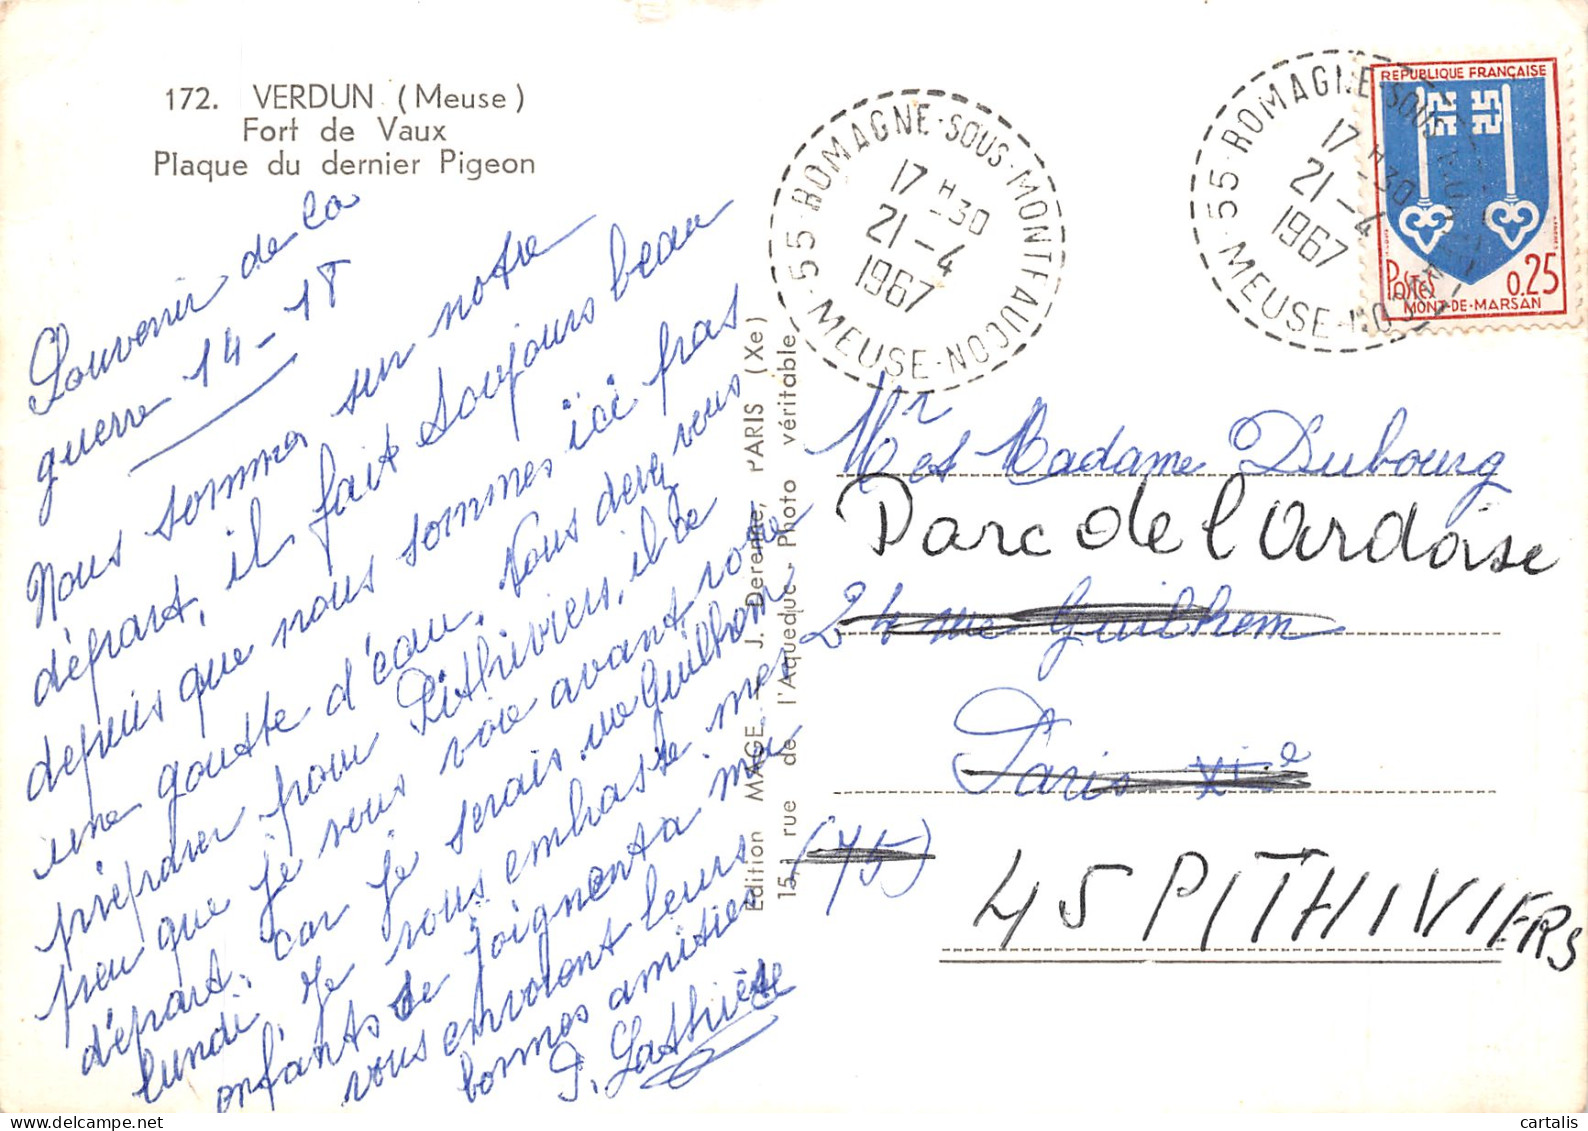 172. VERDUN (Meuse)
Fort de Vaux
Plaque du dernier Pigeon
Souvenir de la
guerre 14-18
Nous sommes sur notre
départ, il fait toujours beau
depuis que nous sommes ici pas
une goutte d'eau. Vous devez vous
préparer pour Pithiviers, il se
peu que je vous voie avant votre
départ, car je serais rue Guilhem
lundi. Je vous embrasse mes
enfants se joignent à moi
vous envoiont leurs
bonnes amitiés
P. Lathuière
Edition MAGE - J. Derenne, PARIS (Xe)
15, rue de l'Aqueduc - Photo véritable
55 ROMAGNE-SOUS-MONTFAUCON
17 H 30
21-4
1967
MEUSE
55 ROMAGNE-SOUS-MONTFAUCON
17 H 30
21-4
1967
MEUSE
REPUBLIQUE FRANÇAISE
POSTES 0.25
MONT-DE-MARSAN
Mr et Madame Dubourg
Parc de l'Ardoise
24 rue Guilhem
Paris XIe
(75)
45 PITHIVIERS
cartalis